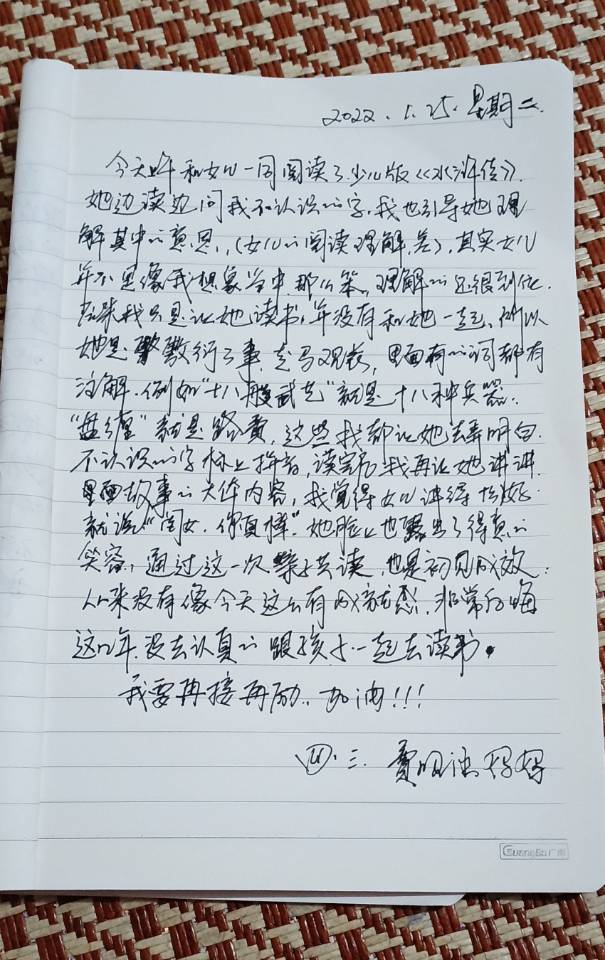 2022.1.25.星期二.
今天上午和女儿一同阅读了少儿版《水浒传》.
她边读边问我不认识的字.我也引导她理
解其中的意思,(女儿的阅读理解差),其实女儿
并不是像我想象当中那么笨,理解的还很到位.
我只是让她读书,并没有和她一起,所以
她是敷衍了事,走马观花,里面有的词都有
注解.例如"十八般武艺"就是十八种兵器.
"盘缠"就是路费,这些我都让她去弄明白.
不认识的字标上拼音,读完后我再让她讲讲
里面故事的大体内容,我觉得女儿讲得恰好.
就说"闺女.你真棒"她脸上也露出了得意的
笑容,通过这一次亲子共读,也是初见成效.
从来没有像今天这么有成就感,非常后悔
这几年没去认真的跟孩子一起去读书.
我要再接再励..加油!!!
四.三. 妈妈
GuangBo广博